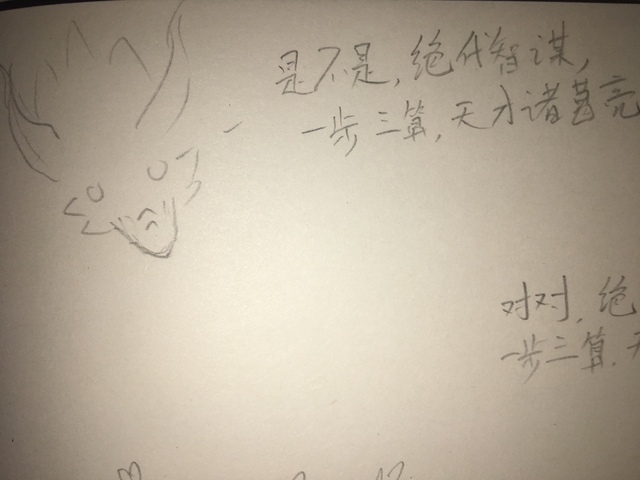 是不是，绝代智谋，
一步三算，天才诸葛亮
对对，绝
一步三算.天